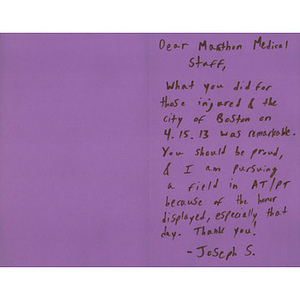 Dear Marthon Medical
Staff,
What you did for
those injured & the
city of Boston on
4.15.13 was remarkable.
You should be proud,
& I am pursuing
a field in AT/PT
because of the honor
displayed, especially that
day. Thank you!
- Joseph S.